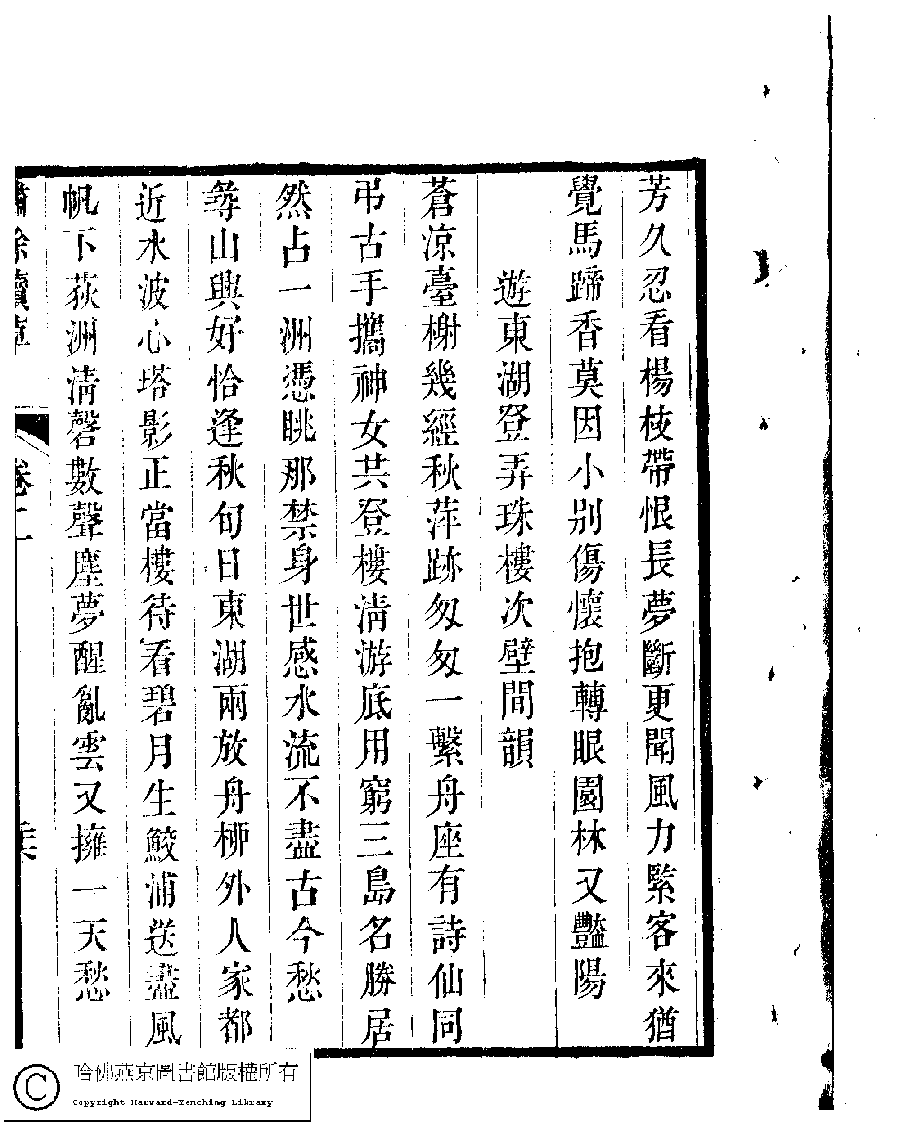 芳久忍看楊枝帶恨長夢斷更聞風力緊客來猶
覺馬蹄香莫因小別傷懷抱轉眼園林又豔陽
遊東湖登弄珠樓次壁間韻
蒼涼臺榭幾經秋萍跡匆匆一繫舟座有詩仙同
弔古手攜神女共登樓清游底用窮三島名勝居
然占一洲憑眺那禁身世感水流不盡古今愁
尋山興好恰逢秋旬日東湖兩放舟柳外人家都
近水波心塔影正當樓待看碧月生鮫浦送盡風
帆下荻洲清磬數聲塵夢醒亂雲又擁一天愁
餘續草
卷二
哈佛燕京圖書館版權所有
Copyright Harvard-Yenching Library